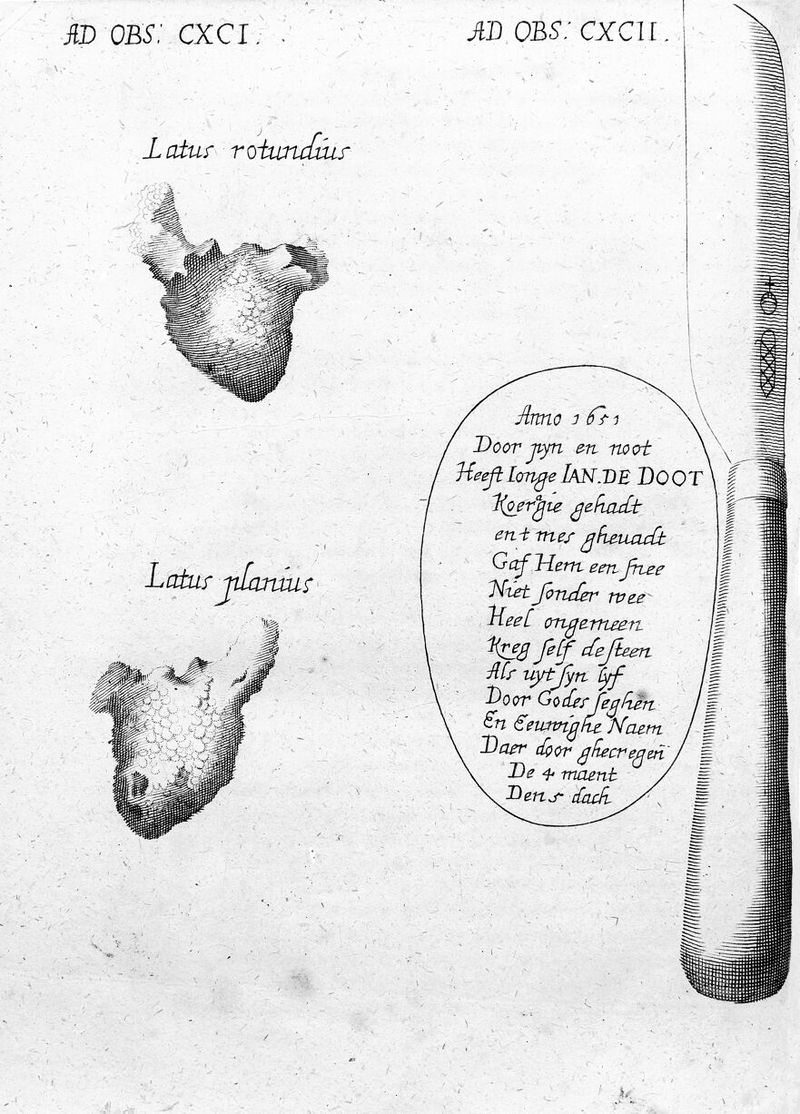 AD OBS: CXCI.
AD OBS: CXCII.
Latus rotundius
Latus planius
Anno 1651
Door pyn en noot
Heeft Ionge IAN.DE DOOT
Koergie gehadt
ent mes gheuadt
Gaf Hem een ſnee
Niet ſonder wee
Heel ongemeen
Kreg ſelf de ſteen
Als uyt ſyn lyf
Door Godes ſeghen
En Eeuwighe Naem
Daer door ghecregen
De 4 maent
Den 5 dach